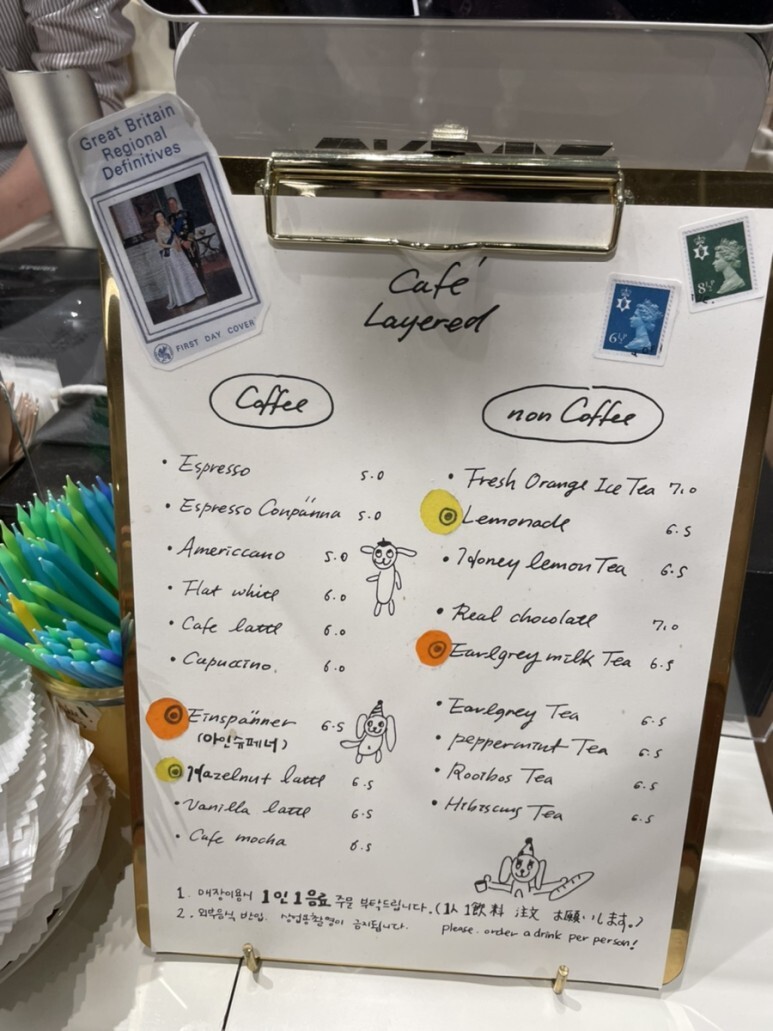 Great Britain
Regional
Definitives
FIRST DAY COVER
8½P
6½P
Café
Layered
Coffee
• Espresso 5.0
• Espresso Conpänna 5.0
• Americcano 5.0
• Flat white 6.0
• Cafe latte 6.0
• Capuccino. 6.0
Einspänner 6.5
(아인슈페너)
Hazelnut latte 6.5
• Vanilla latte 6.5
• Cafe mocha 6.5
non Coffee
• Fresh Orange Ice Tea 7.0
Lemonade 6.5
• Honey lemon Tea 6.5
• Real chocolate 7.0
Earlgrey milk Tea 6.5
• Earlgrey Tea 6.5
• peppermint Tea 6.5
• Rooibos Tea 6.5
• Hibiscus Tea 6.5
1. 매장이용시 1인 1음료 주문 부탁드립니다. (1人 1飲料 注文 お願いします。)
2. 외부음식 반입, 상업용촬영이 금지됩니다. please. order a drink per person!